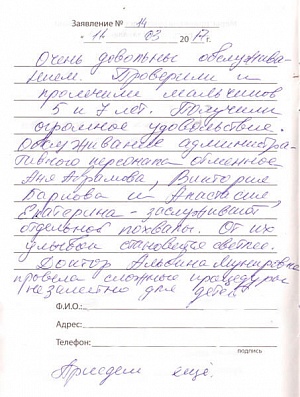 Заявление № 14
" 11 03 2017 г.
Очень довольны обслужива-
нием. Проверили и
пролечили мальчиков
5 и 7 лет. Получили
огромное удовольствие.
Обслуживание администра-
тивного персонала отменное
Аня Абрамова, Виктория
Барлова и Анастасия,
Екатерина - заслуживают
отдельной похвалы. От их
улыбок становится светлее.
Доктор Альбина Мунировна
провела сложные процедуры
незаметно для детей
Ф.И.О.:
Адрес:
Телефон:
подпись
Приедем ещё.